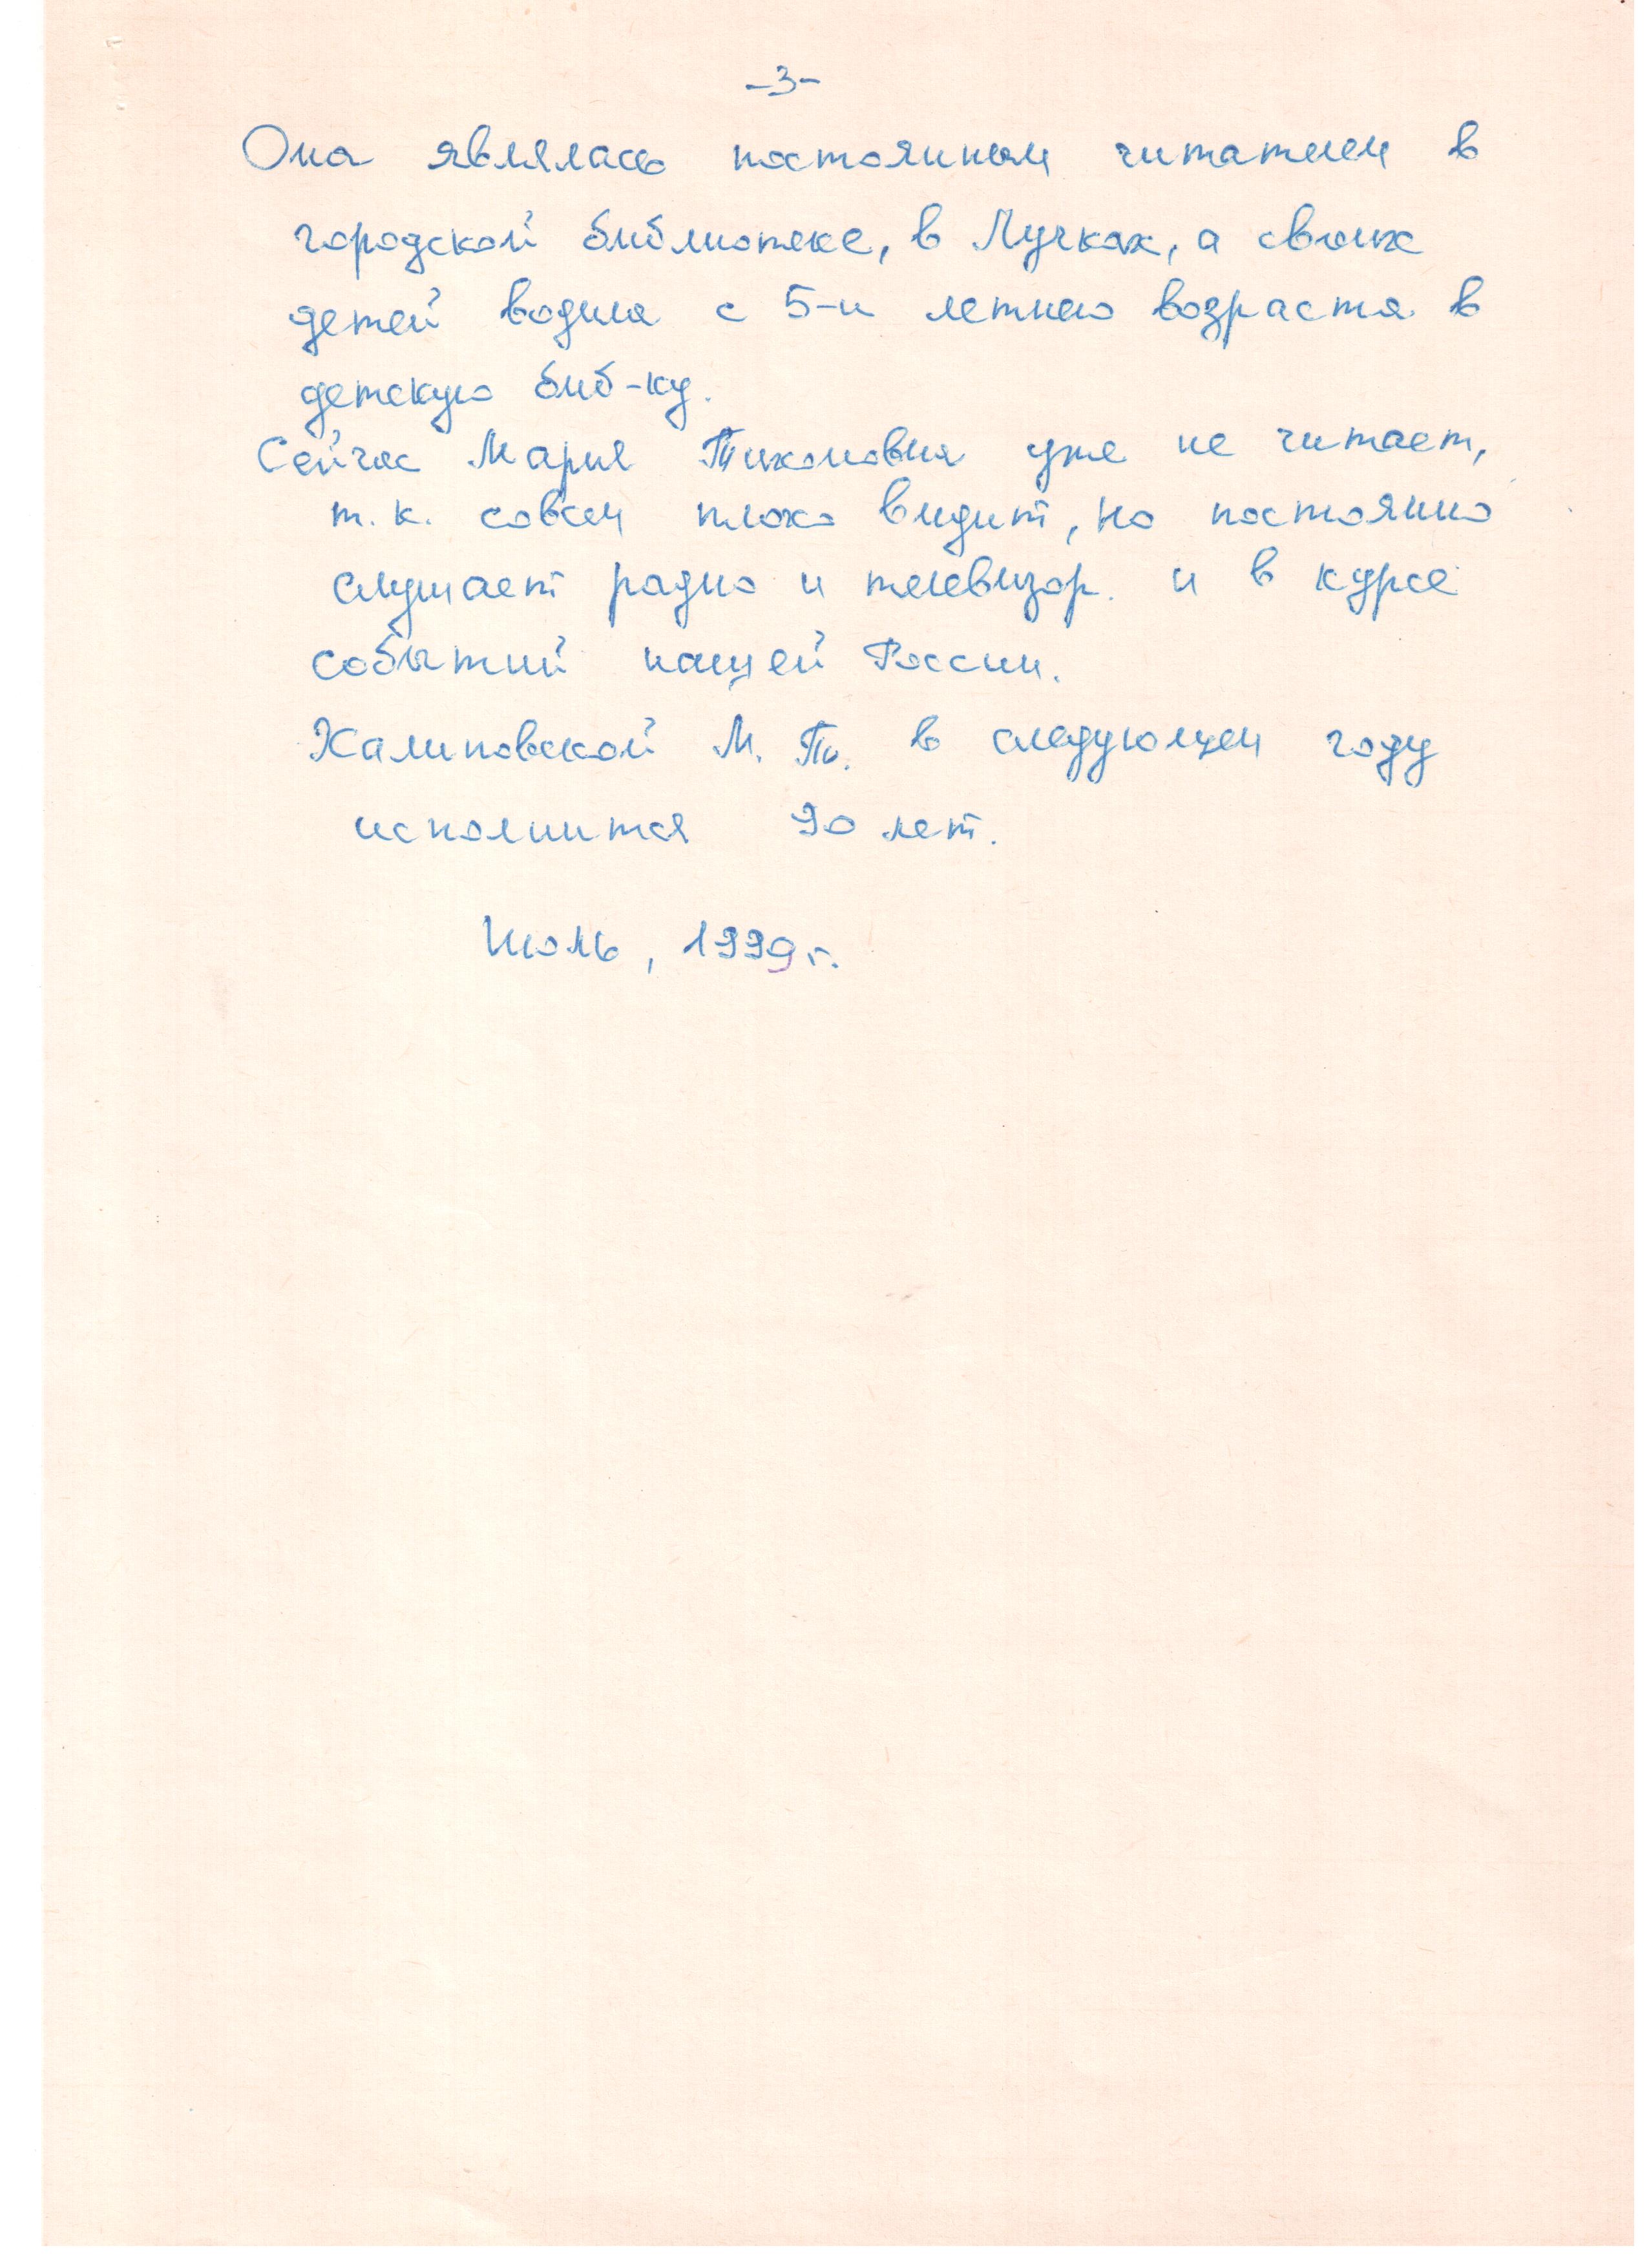 -3-
Она являлась постоянным читателем в
городской библиотеке, в Лучках, а своих
детей водила с 5-и летнего возраста в
детскую биб-ку.
Сейчас Мария Тихоновна уже не читает,
т.к. совсем плохо видит, но постоянно
слушает радио и телевизор. и в курсе
событий нашей России.
Калиновской М. Ти. в следующем году
исполнится 90 лет.
Июль, 1999 г.